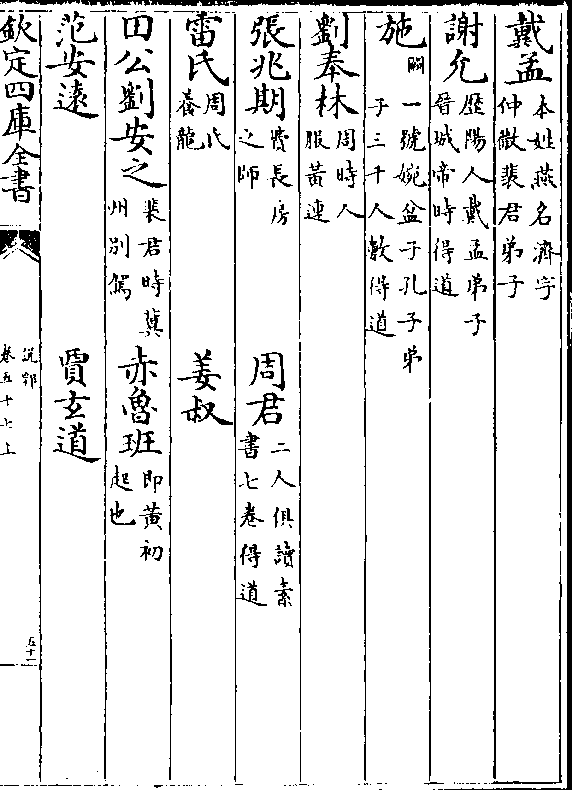 戴孟本姓燕名濟字仲㣲裴君弟子
謝允歴陽人戴孟弟子晉城帝時得道
施闕一號婉盆子孔子弟子三千人數得道
劉奉林周時人服黄連
張兆期費長房之師 周君二人俱讀素書七卷得道
雷氏周氏養龍 姜叔
田公劉安之裴君時冀州別駕 赤魯班即黄初起也
范安遠 賈玄道
欽定四庫全書 說郛卷五十七上 五十一